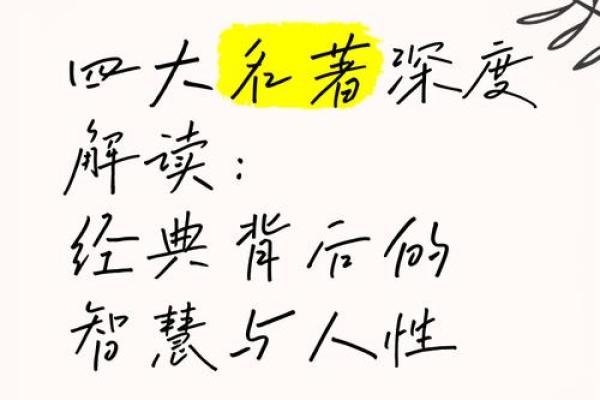 四大名著深度
解读：
经典背后的
智慧与人性